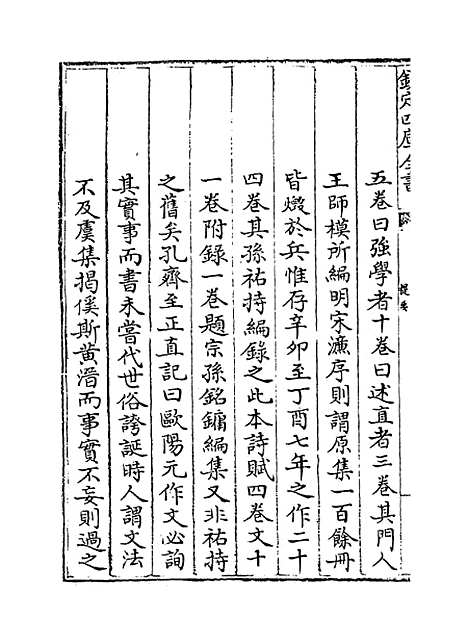 欽定四庫全書
提要
五卷曰強學者十卷曰述直者三卷其門人
王師模所編明宋濂序則謂原集一百餘冊
皆燬於兵惟存辛卯至丁酉七年之作二十
四卷其孫祐持編錄之此本詩賦四卷文十
一卷附錄一卷題宗孫銘鏞編集又非祐持
之舊矣孔齊至正直記曰歐陽元作文必詢
其實事而書未嘗代世俗誇誕時人謂文法
不及虞集揭傒斯黄溍而事實不妄則過之